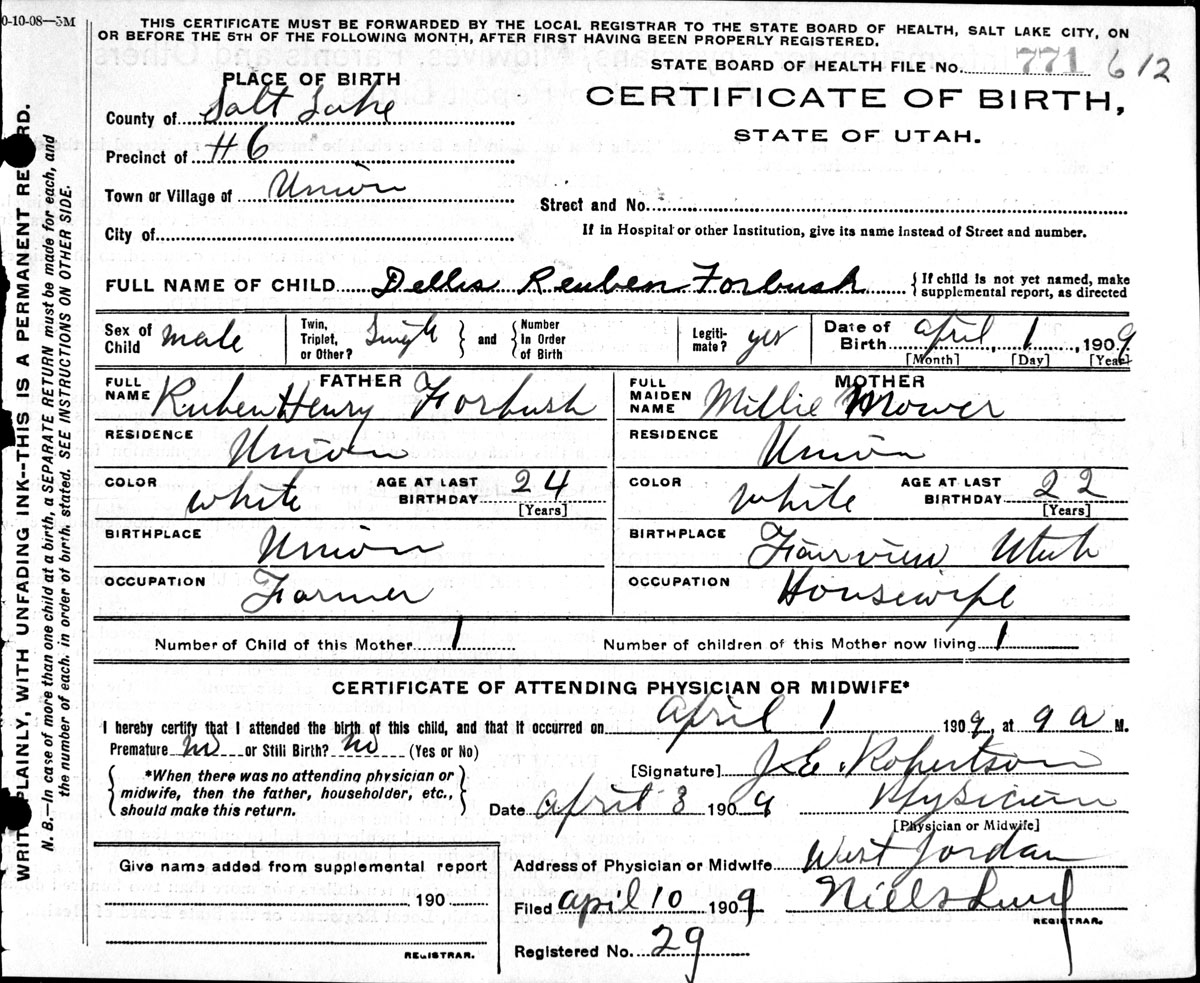 0-10-08—3M
THIS CERTIFICATE MUST BE FORWARDED BY THE LOCAL REGISTRAR TO THE STATE BOARD OF HEALTH, SALT LAKE CITY, ON
OR BEFORE THE 5TH OF THE FOLLOWING MONTH, AFTER FIRST HAVING BEEN PROPERLY REGISTERED.
STATE BOARD OF HEALTH FILE No. 771 612
CERTIFICATE OF BIRTH,
STATE OF UTAH.
PLACE OF BIRTH
County of Salt Lake
Precinct of #6
Town or Village of Union
City of
Street and No.
If in Hospital or other Institution, give its name instead of Street and number.
FULL NAME OF CHILD Dellis Reuben Forbush {If child is not yet named, make supplemental report, as directed
Sex of Child male
Twin, Triplet, or Other? Single } and { Number In Order of Birth
Legitimate? yes
Date of Birth april 1, 1909
[Month] [Day] [Year]
FATHER
FULL NAME Ruben Henry Forbush
RESIDENCE Union
COLOR white AGE AT LAST BIRTHDAY 24 [Years]
BIRTHPLACE Union
OCCUPATION Farmer
MOTHER
FULL MAIDEN NAME Millie Mower
RESIDENCE Union
COLOR white AGE AT LAST BIRTHDAY 22 [Years]
BIRTHPLACE Fairview Utah
OCCUPATION Housewife
Number of Child of this Mother 1 Number of children of this Mother now living 1
CERTIFICATE OF ATTENDING PHYSICIAN OR MIDWIFE*
I hereby certify that I attended the birth of this child, and that it occurred on april 1 1909, at 9 a M.
Premature no or Still Birth? no (Yes or No)
{ *When there was no attending physician or
midwife, then the father, householder, etc.,
should make this return. }
[Signature] J.E. Robertson
Date april 3 1909 Physician
[Physician or Midwife]
Address of Physician or Midwife West Jordan
Filed april 10 1909 Niels Lind
REGISTRAR.
Registered No. 29
Give name added from supplemental report
190
REGISTRAR.
WRITE PLAINLY, WITH UNFADING INK--THIS IS A PERMANENT RECORD.
N. B.—In case of more than one child at a birth, a SEPARATE RETURN must be made for each, and
the number of each, in order of birth, stated. SEE INSTRUCTIONS ON OTHER SIDE.